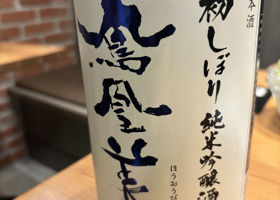 本酒
初しぼり
純米吟醸酒
鳳凰美
ほうおうび